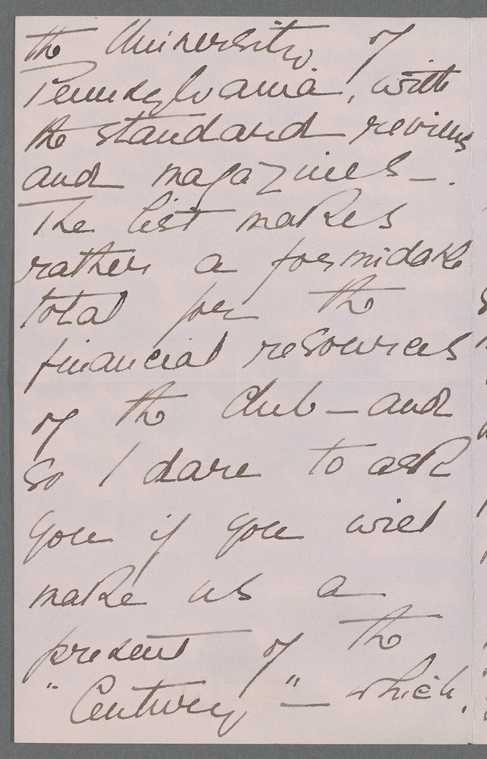 the University of
Pennsylvania, with
the standard reviews
and magazines —.
The list makes
rather a formidable
total for the
financial resources
of the Club — and
so I dare to ask
you if you will
make us a
present of the
"Century" — which,